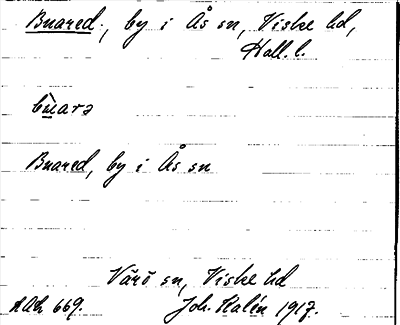 Buared., by i Ås sn, Viske hd,
Hall. l.
bùarə
Buared, by i Ås sn
Värö sn, Viske hd
669. Joh. Kalén 1917.